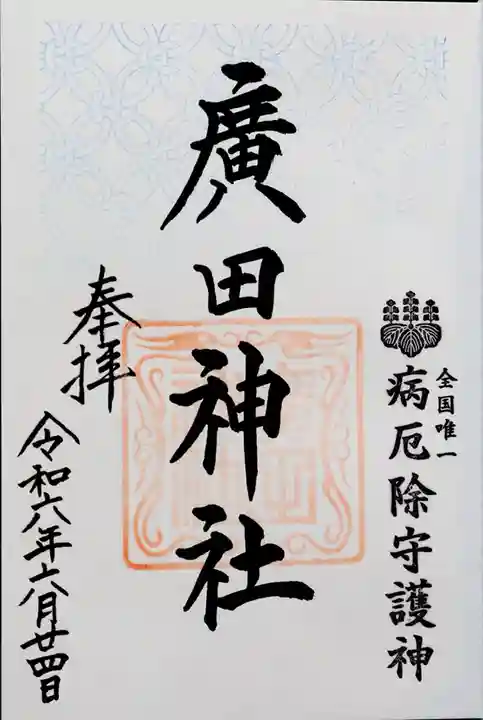 全国唯一
病厄除守護神
廣田神社
奉拝
令和六年六月廿四日